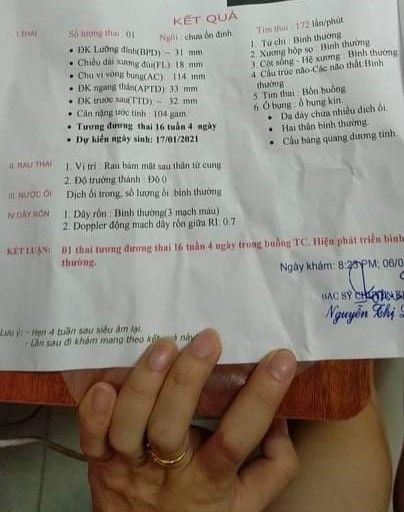 KẾT QUẢ
I.THAI
Số lượng thai : 01
Ngôi : chưa ổn định
• ĐK Lưỡng đỉnh(BPD) ~ 31 mm
• Chiều dài xương đùi(FL) 18 mm
• Chu vi vòng bụng(AC) 114 mm
• ĐK ngang thân(APTD) 33 mm
• ĐK trước sau(TTD) ~ 32 mm
• Cân nặng ước tính : 104 gam.
• Tương đương thai 16 tuần 4 ngày
• Dự kiến ngày sinh: 17/01/2021
Tim thai : 172 lần/phút
1. Tứ chi : Bình thường
2. Xương hộp sọ : Bình thường
3. Cột sống - Hệ xương : Bình thường
4. Cấu trúc não-Các não thất:Bình
thường
5. Tim thai : Bốn buồng
6. Ổ bụng : ổ bụng kín.
• Dạ dày chứa nhiều dịch ối.
• Hai thận bình thường.
• Cầu bàng quang dương tính.
II. RAU THAI
1. Vị trí : Rau bám mặt sau thân tử cung
2. Độ trưởng thành : Độ 0
III. NƯỚC ỐI
Dịch ối trong, số lượng ối bình thường
IV.DÂY RỐN
1. Dây rốn : Bình thường(3 mạch máu)
2. Doppler động mạch dây rốn giữa RI: 0.7
KẾT LUẬN:
01 thai tương đương thai 16 tuần 4 ngày trong buồng TC. Hiện phát triển bình
thường.
Ngày khám: 8:23 PM; 06/0
BÁC SỸ
Nguyễn Thị
Lưu ý: - Hẹn 4 tuần sau siêu âm lại.
- Lần sau đi khám mang theo kết quả này